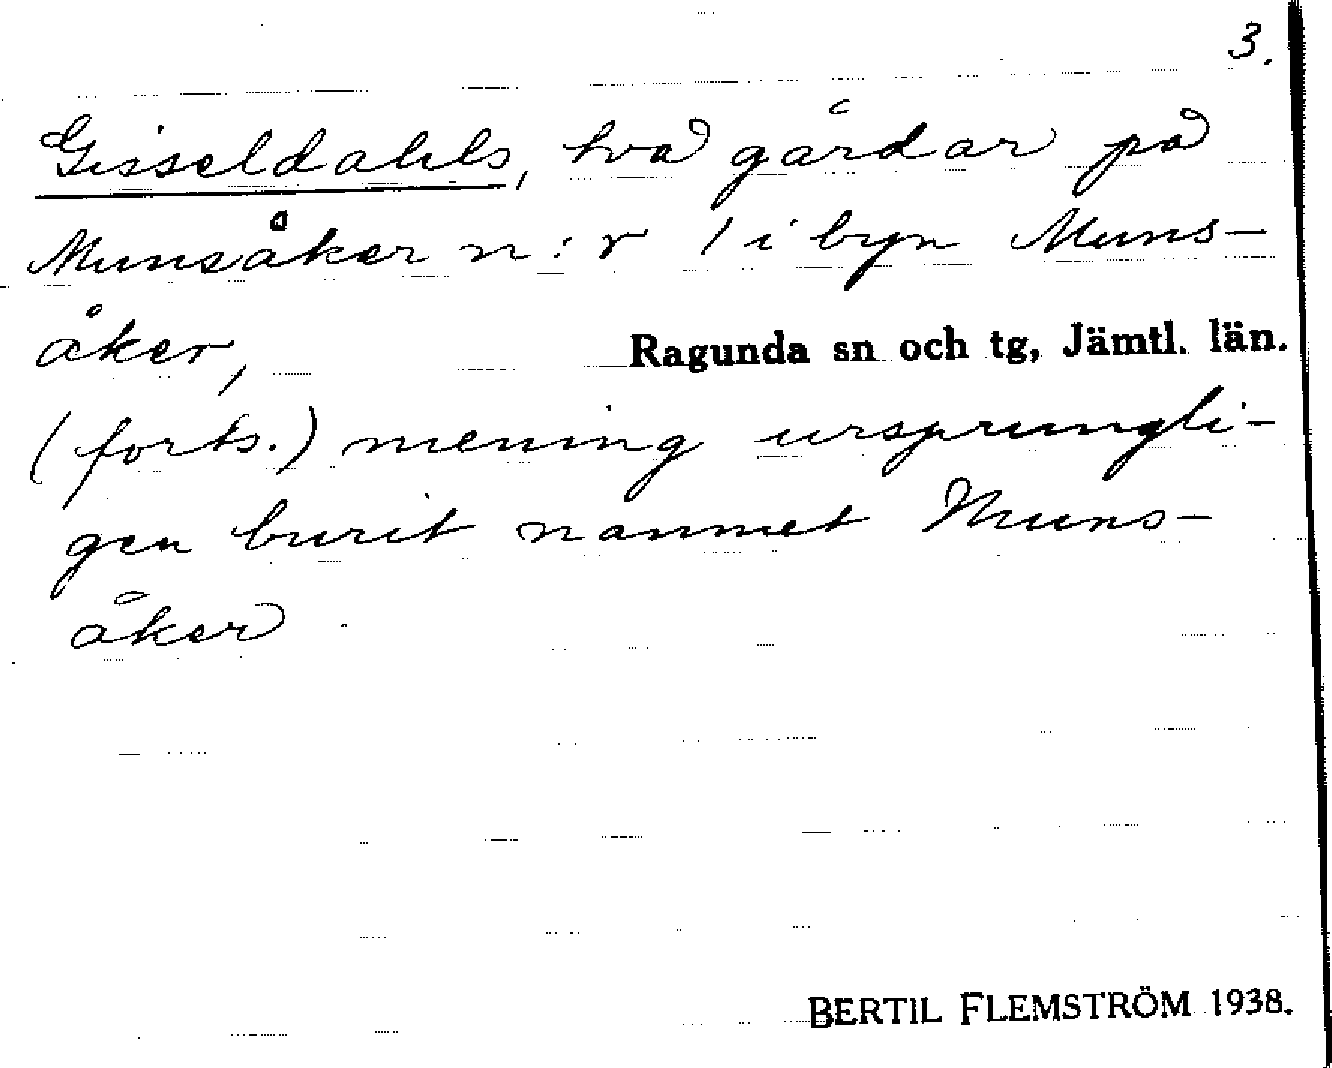 3.
Gisseldahls, två gårdar på
Munsåker n:r 1 i byn Muns-
åker, Ragunda sn och tg, Jämtl. län.
(forts.) mening ursprungli-
gen burit namnet Muns-
åker.
BERTIL FLEMSTRÖM 1938.